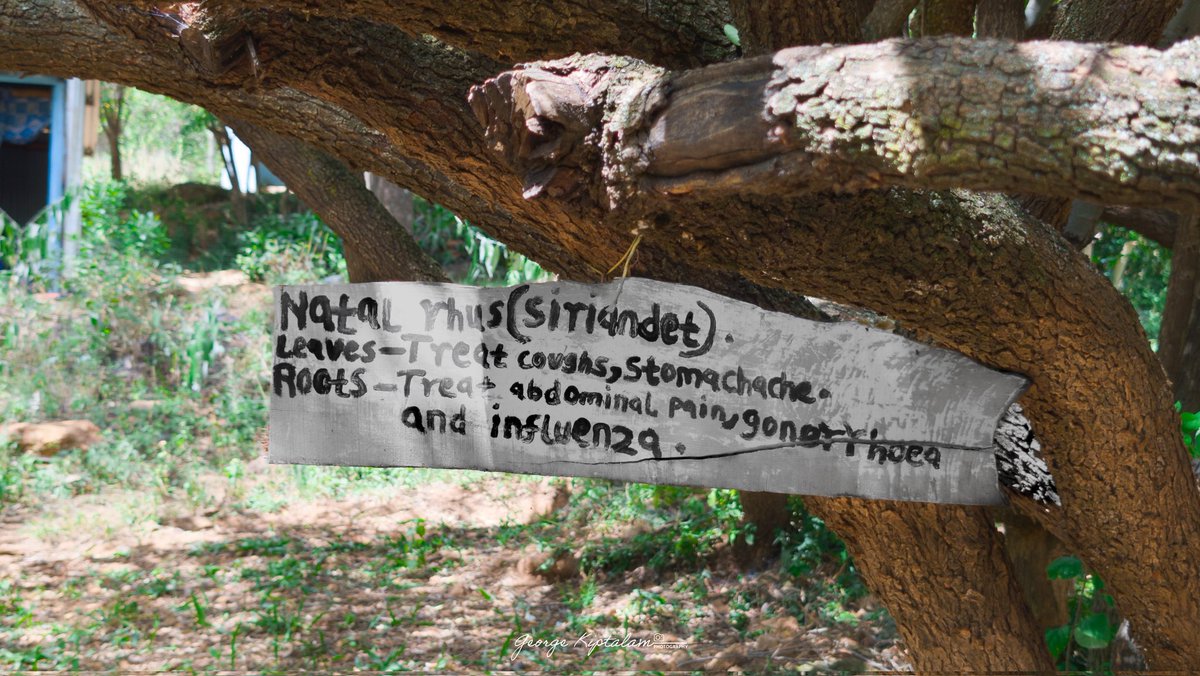 Natal rhus (siriandet).
Leaves - Treat coughs, Stomachache.
Roots - Treat abdominal pain, gonorrhoea
and influenza.
George Kiptalam
PHOTOGRAPHY